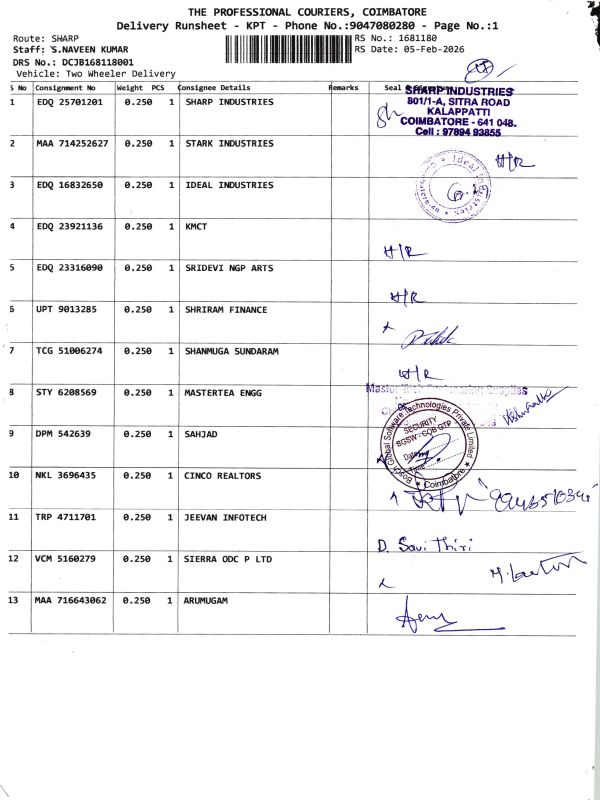 THE PROFESSIONAL COURIERS, COIMBATORE
Delivery Runsheet - KPT - Phone No.:9047080280 - Page No.:1
Route: SHARP
RS No.: 1681180
Staff: S.NAVEEN KUMAR
RS Date: 05-Feb-2026
DRS No.: DCJB168118001
Vehicle: Two Wheeler Delivery
S No Consignment No Weight PCS Consignee Details Remarks Seal &
1 EDQ 25701201 0.250 1 SHARP INDUSTRIES
SHARP INDUSTRIES
801/1-A, SITRA ROAD
KALAPPATTI
COIMBATORE - 641 048.
Cell : 97894 93855
2 MAA 714252627 0.250 1 STARK INDUSTRIES H/R
3 EDQ 16832650 0.250 1 IDEAL INDUSTRIES
4 EDQ 23921136 0.250 1 KMCT H/R
5 EDQ 23316090 0.250 1 SRIDEVI NGP ARTS H/R
6 UPT 9013285 0.250 1 SHRIRAM FINANCE
7 TCG 51006274 0.250 1 SHANMUGA SUNDARAM H/R
8 STY 6208569 0.250 1 MASTERTEA ENGG
9 DPM 542639 0.250 1 SAHJAD
Bosch Global Software Technologies Private Limited
SECURITY
BGSW - COB GTP
Date
Time
Coimbatore
10 NKL 3696435 0.250 1 CINCO REALTORS
11 TRP 4711701 0.250 1 JEEVAN INFOTECH D. Savi Thiri
12 VCM 5160279 0.250 1 SIERRA ODC P LTD
13 MAA 716643062 0.250 1 ARUMUGAM